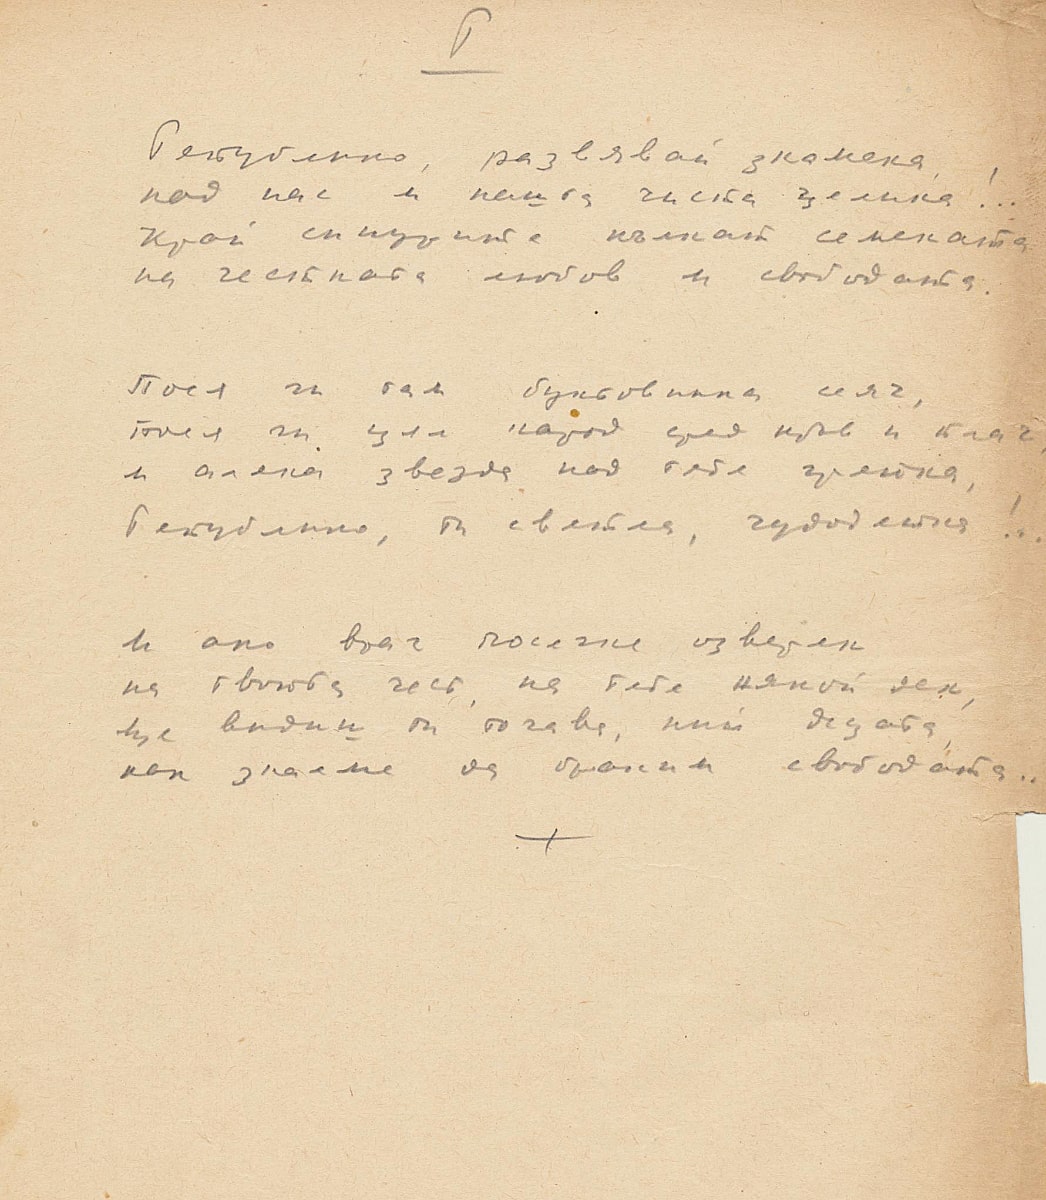 Р
Републико, развявай знамена!
над нас и нашта чиста целина!...
Край снищрите кълнат семената
на честната любов и свободата.
Пося ги там бунтовника сеяч,
пося ги цял народ сред кръв и плач,
и алена звезда над тебе гретна,
Републико, ти светла, чудодетна!..
И ако враг посегне озверен
на твойта чест, на тебе някой ден,
ще видиш ти тогава, ний децата,
как знаеме да браним свободата..